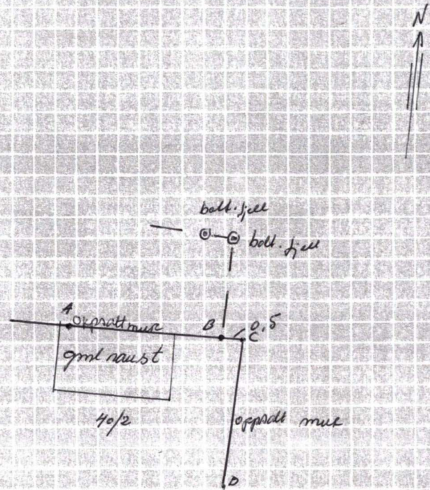 N
bolt.fjell
bolt.fjell
A
oppsatt mur
B
0,5
C
gml naust
40/2
oppsatt mur
D